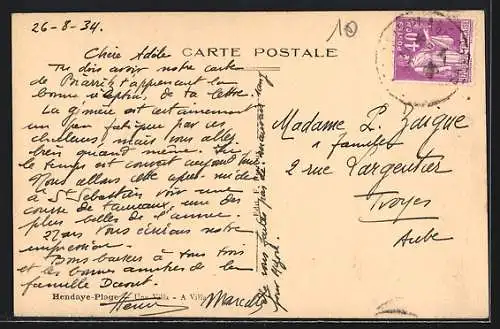 26-8-34.
10
CARTE POSTALE
Chère Adèle
Tu dois avoir notre carte
de Biarritz t'apprenant la
bonne réception de ta lettre.
La gamine est certainement
un peu fatiguée par ces
chaleurs, mais vous allez
très quand même
le temps est couvert aujourd'hui
Nous allons cette après-midi
à St Sébastien voir une
course de taureaux, une des
plus belles de l'année.
vous écrirons notre
impression.
Bons baisers à tous trois
et les bonnes amitiés de la
famille
Henri Marcelle
Hendaye-Plage - Une Villa - A Villa
ne vous faites pas de mauvais sang
pour
POSTES
40c
Madame P.
& famille
2 rue Largentier
Troyes
Aube